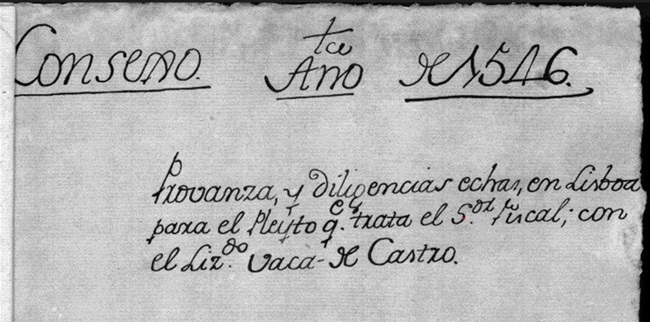 Consexo. Año de 1546.
Provanza, y Diligencias echas, en Lisboa
para el Pleyto q.e trata el S.or fiscal; con
el Liz.do Vaca de Castro.